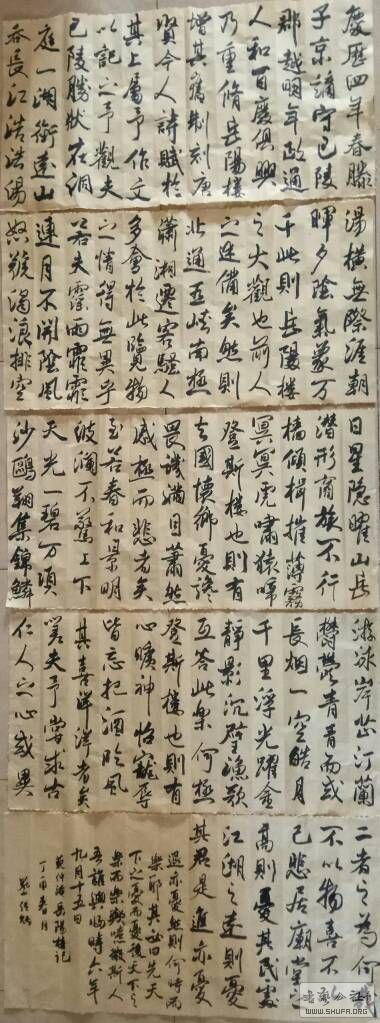 慶歷四年春滕
子京謫守巴陵
郡越明年政通
人和百廢俱興
乃重脩岳陽樓
增其舊制刻唐
賢今人詩賦於
其上屬予作文
以記之予觀夫
巴陵勝狀在洞
庭一湖銜遠山
吞長江浩浩湯
湯橫無際涯朝
暉夕陰氣象万
千此則岳陽樓
之大觀也前人
之述備矣然則
北通巫峽南極
瀟湘遷客騷人
多會於此覽物
之情得無異乎
若夫霪雨霏霏
連月不開陰風
怒號濁浪排空
日星隐曜山岳
潜形商旅不行
檣傾楫摧薄霧
冥冥虎嘯猿啼
登斯樓也則有
去國懷鄉憂讒
畏譏滿目蕭然
感極而悲者矣
至若春和景明
波瀾不驚上下
天光一碧万頃
沙鷗翔集錦鱗
游泳岸芷汀蘭
鬱鬱青青而或
長烟一空皓月
千里浮光躍金
靜影沉璧漁歌
互答此樂何極
登斯樓也則有
心曠神怡寵辱
皆忘把酒臨風
其喜洋洋者矣
嗟夫予嘗求古
仁人之心或異
二者之為何哉
不以物喜不以
己悲居廟堂之
高則憂其民處
江湖之遠則憂
其君是進亦憂
退亦憂然則何時而
樂耶其必曰先天
下之憂而憂後天下之
樂而樂歟噫微斯人
吾誰與歸時六年
九月十五日
范仲淹岳陽樓記
丁酉春月
WWW.SHUFA.ORG